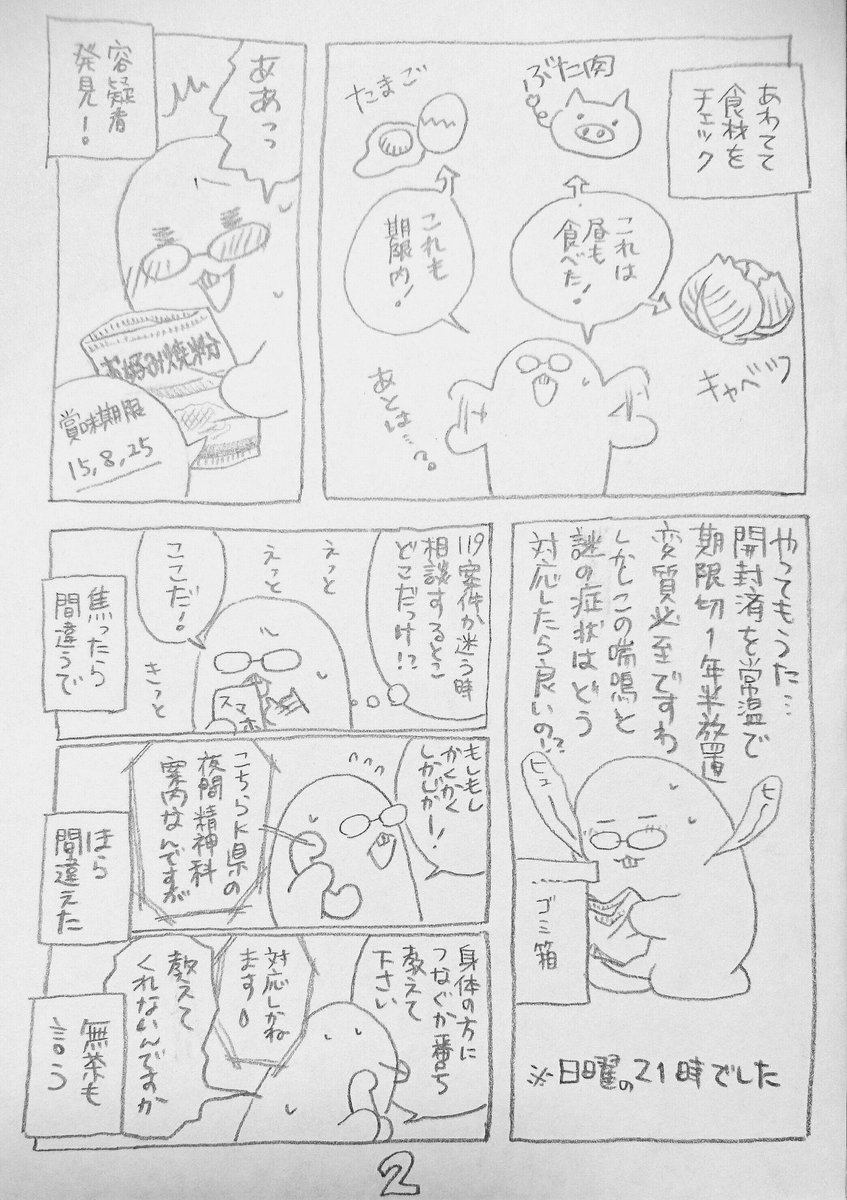 あわてて
食材を
チェック
ぶた肉
たまご
これは
昼も
食べた!
これも
期限内!
キャベツ
あとは…?。
容疑者
発見!
ああっ
お好み焼粉
賞味期限
15,8,25
やってもうた…
開封済を常温で
期限切1年半放置
変質必至ですわ
しかしこの喘鳴と
謎の症状はどう
対応したら良いの!?
ヒュー
ヒュー
ゴミ箱
※日曜の21時でした
119案件か迷う時
相談するとこ
どこだっけ!?
えっと
えっと
ここだ!
きっと
スマホ
焦ったら
間違うで
もしもし
かくかく
しかじかー!
こちらK県の
夜間精神科
案内なんですが
ほら
間違えた
身体の方に
つなぐか番号
教えて
下さい
対応しかね
ます
教えて
くれないんですか
無茶も
言う
2